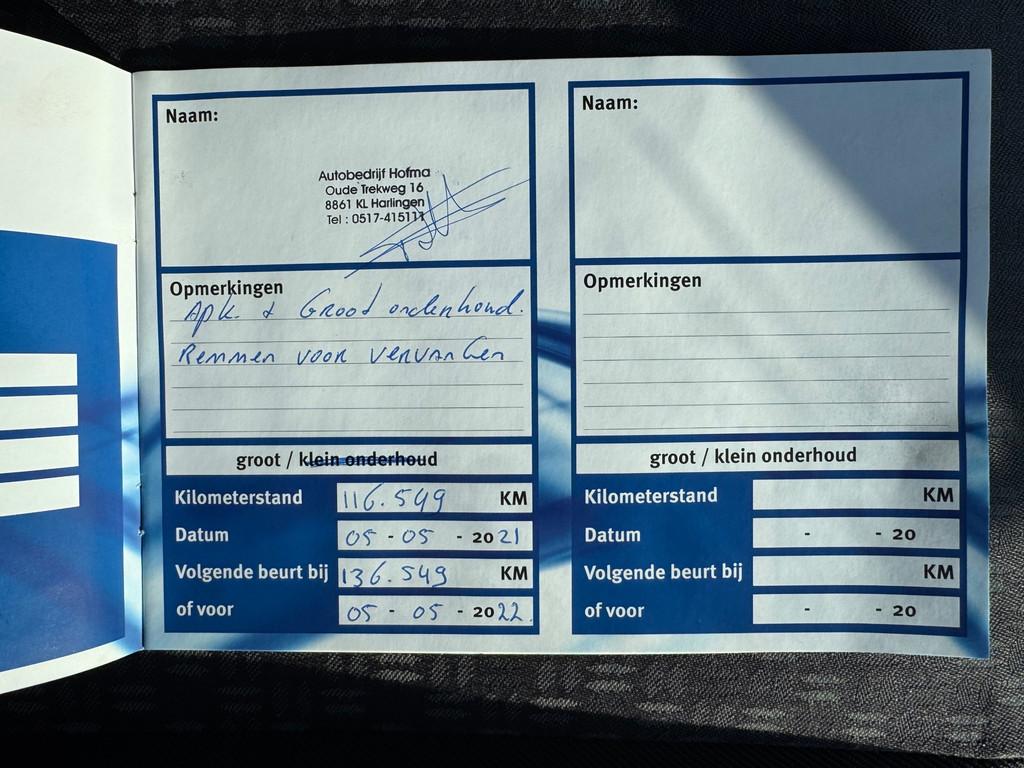 Naam:
Autobedrijf Hofma
Oude Trekweg 16
8861 KL Harlingen
Tel : 0517-415111
Opmerkingen
Apk. & Groot onderhoud.
Remmen voor vervangen
groot / klein onderhoud
Kilometerstand 116.549 KM
Datum 05 - 05 - 2021
Volgende beurt bij 136.549 KM
of voor 05 - 05 - 2022.
Naam:
Opmerkingen
groot / klein onderhoud
Kilometerstand KM
Datum - - 20
Volgende beurt bij KM
of voor - - 20